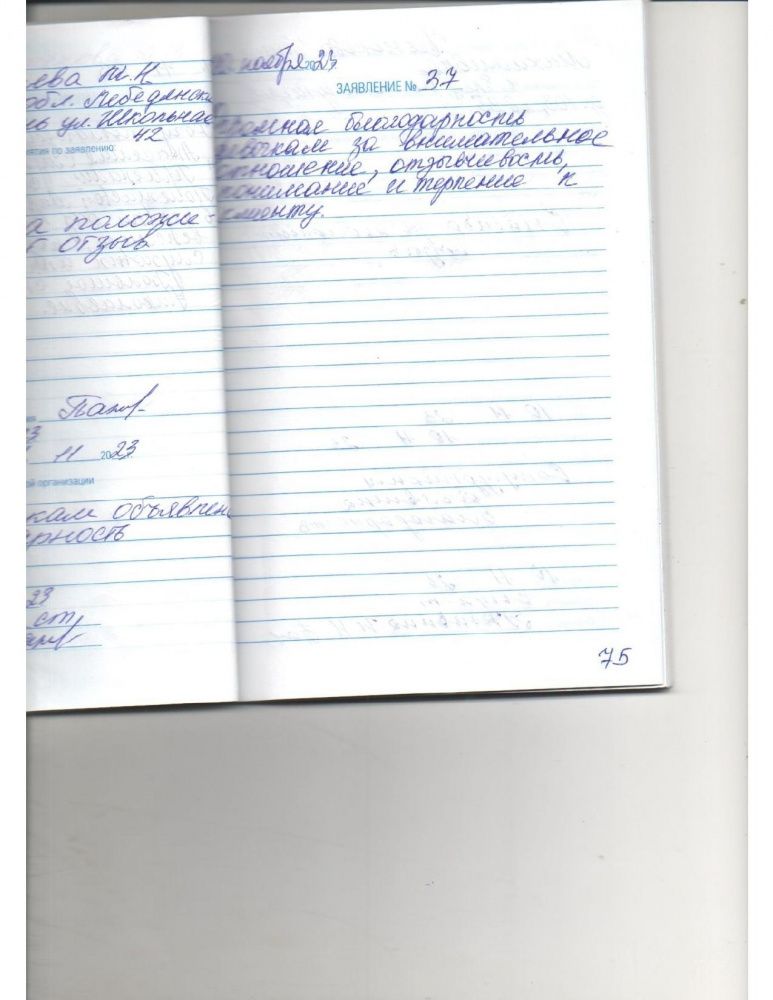 ева Т.Н
обл. Лебедянски
ул. Школьная
42
ятия по заявлению:
а положи-
отзыв
11 2023
ой организации
кам объявлен
арность
23
ноября 2023
ЗАЯВЛЕНИЕ № 37
громная благодарность
девочкам за внимательное
отношение, отзывчивость,
понимание и терпение к
клиенту.
75